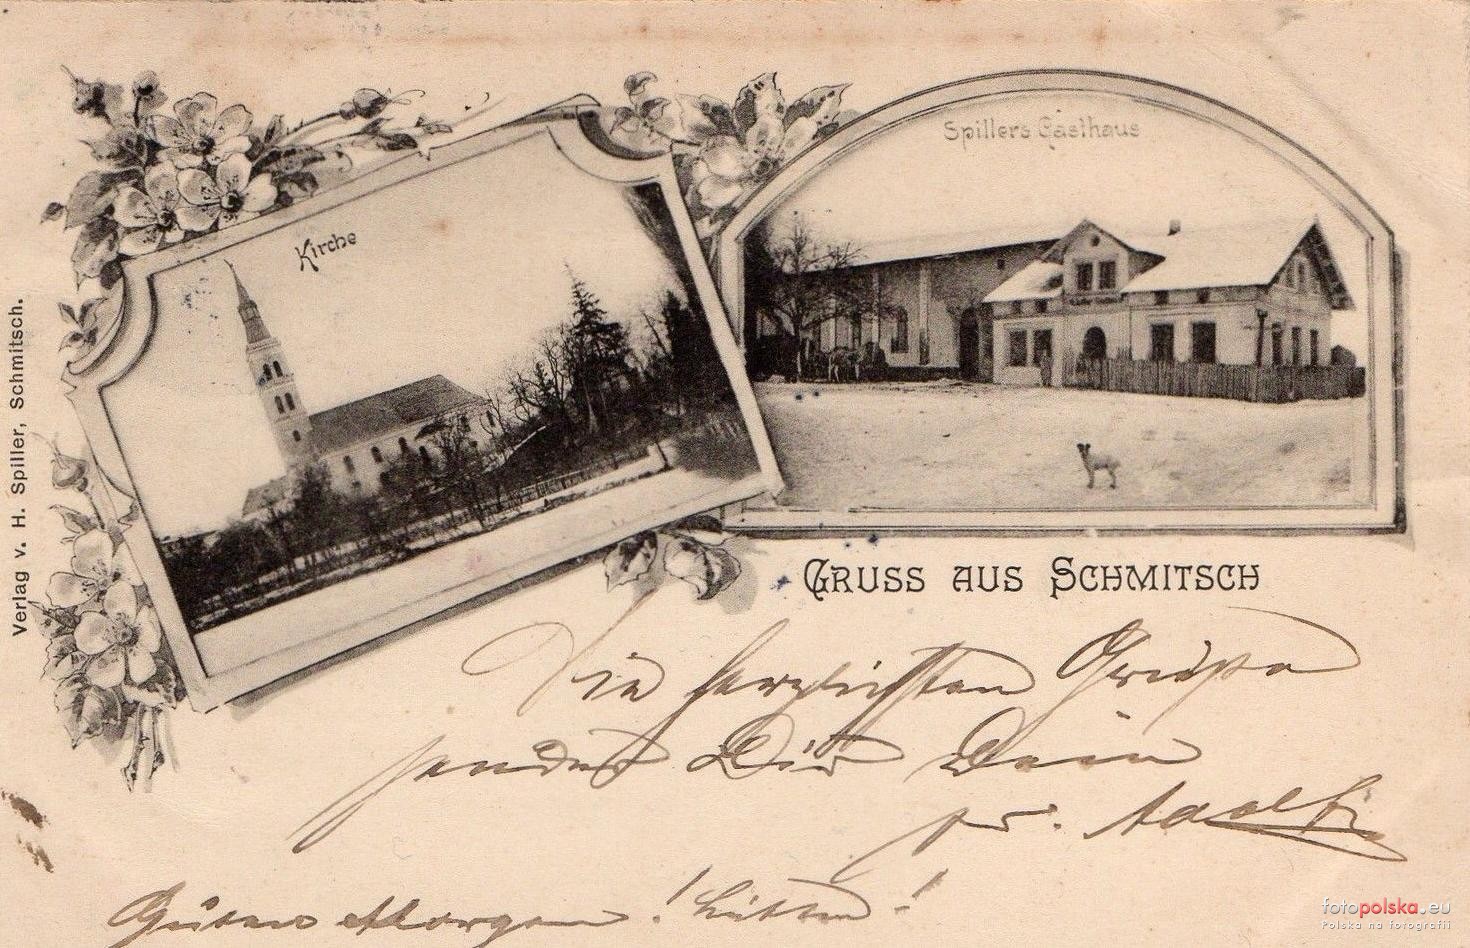 Kirche
Spillers Gasthaus
Verlag v. H. Spiller, Schmitsch.
GRUSS AUS SCHMITSCH
Die herzlichsten Grüße
sendet Dir Dein
Guten Morgen!
fotopolska.eu
Polska na fotografii